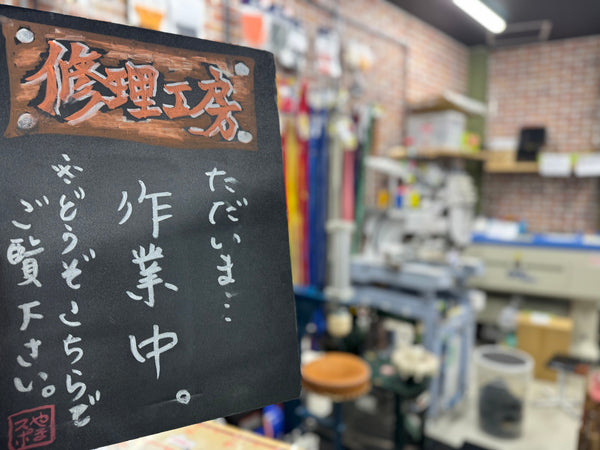 修理工房
ただいま…
作業中。
さどうぞこちらで
ご覧下さい。